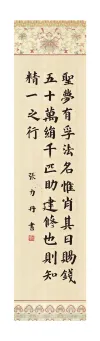 聖夢有孚法名惟肖其日賜錢
五十萬絹千匹助建修也則知
精一之行
張力丹書